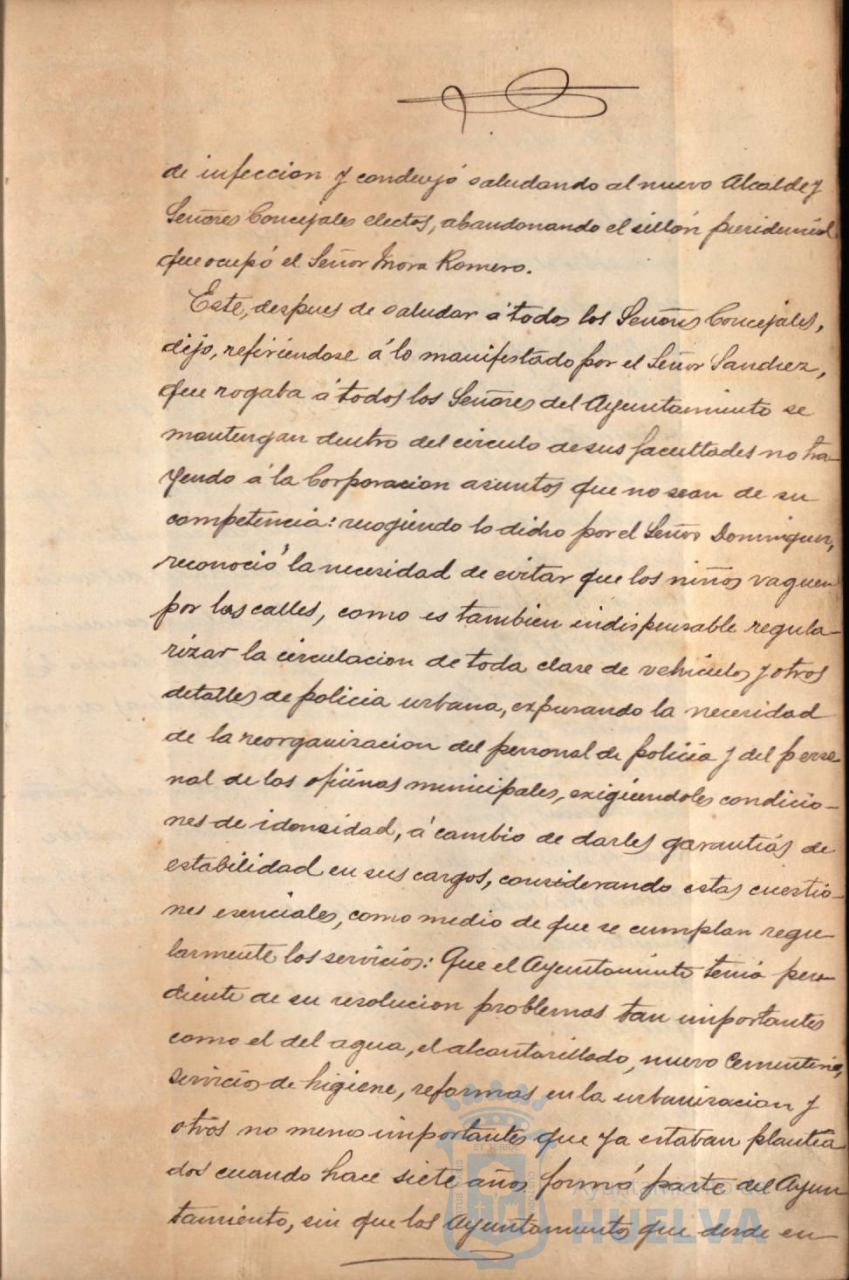 de infeccion y concluyó saludando al nuevo Alcalde y
Señores Concejales electos, abandonando el sillón presidencial
que ocupó el Señor Mora Romero.
Este, despues de saludar á todos los Señores Concejales,
dijo, refiriéndose á lo manifestado por el Señor Sanchez,
que rogaba á todos los Señores del Ayuntamiento se
mantengan dentro del circulo de sus facultades no tra-
yendo á la Corporacion asuntos que no sean de su
competencia: recogiendo lo dicho por el Señor Dominguez,
reconoció la necesidad de evitar que los niños vaguen
por las calles, como es tambien indispensable regula-
rizar la circulacion de toda clase de vehiculos y otros
detalles de policia urbana, expresando la necesidad
de la reorganizacion del personal de policia y del perso-
nal de las oficinas municipales, exigiendoles condicio-
nes de idoneidad, á cambio de darles garantias de
estabilidad en sus cargos, considerando estas cuestio-
nes esenciales, como medio de que se cumplan regu-
larmente los servicios: Que el Ayuntamiento tenia pen-
diente de su resolucion problemas tan importantes
como el del agua, el alcantarillado, nuevo Cementerio,
servicios de higiene, reformas en la urbanizacion y
otros no menos importantes que ya estaban plantea
dos cuando hace siete años formó parte del Ayun
tamiento, sin que los Ayuntamientos que desde en
Ayuntamiento de
HUELVA